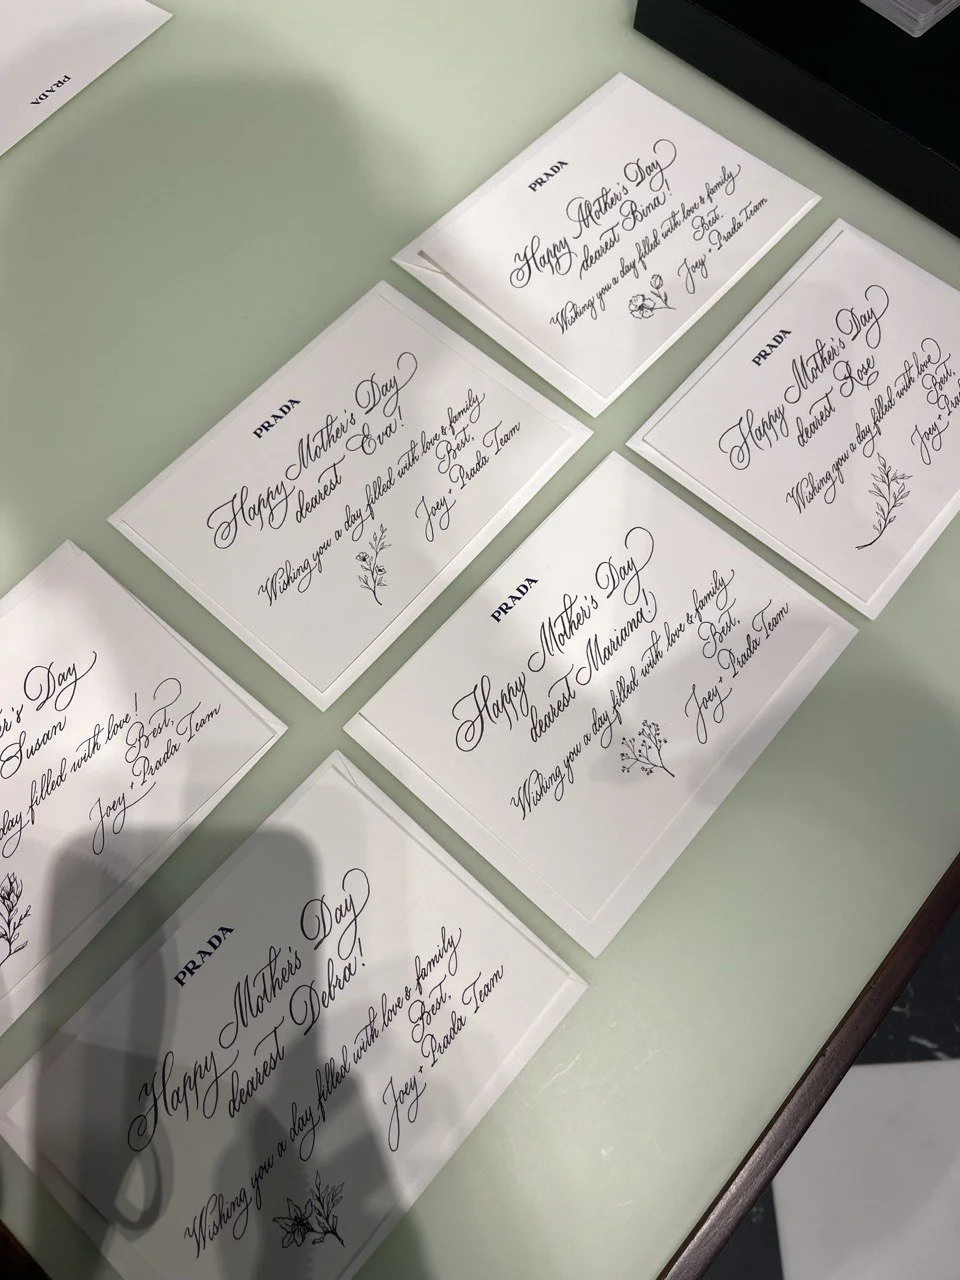 PRADA
PRADA
Happy Mother's Day
dearest Bina!
Wishing you a day filled with love & family
Best,
Joey + Prada Team
PRADA
Happy Mother's Day
dearest Rose
Wishing you a day filled with love
Best,
Joey + Pra
PRADA
Happy Mother's Day
dearest Eva!
Wishing you a day filled with love & family
Best,
Joey + Prada Team
PRADA
Happy Mother's Day
dearest Mariana!
Wishing you a day filled with love & family
Best,
Joey + Prada Team
er's Day
Susan
day filled with love!
Best,
Joey + Prada Team
PRADA
Happy Mother's Day
dearest Debra!
Wishing you a day filled with love & family
Best,
Joey + Prada Team